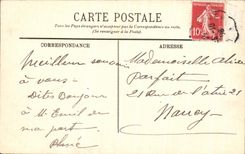 CARTE POSTALE
Tous les Pays étrangers n'acceptent pas la Correspondance au recto.
(Se renseigner à la Poste)
CORRESPONDANCE
ADRESSE
Meilleur souvenir
à vous
Dites Bonjour
à Mr Emil de
ma part
Mademoiselle Alice
Parfait
21 Rue de l'atrie 21
Nancy
10